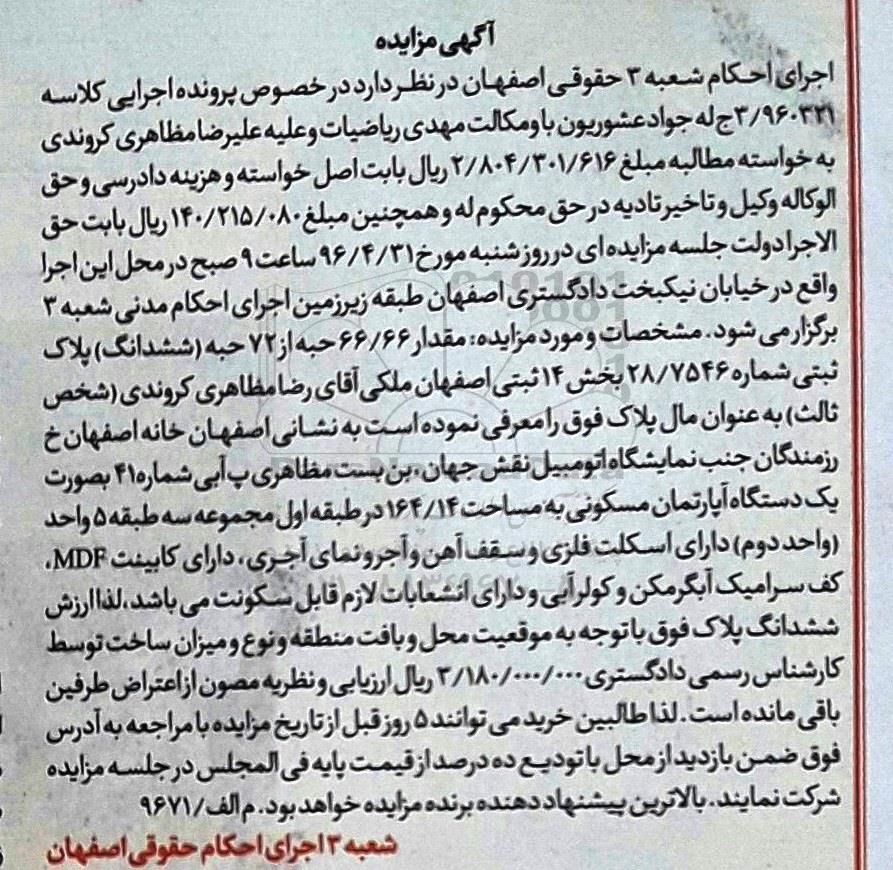 آگهی مزایده
اجرای احکام شعبه ۳ حقوقی اصفهان در نظر دارد در خصوص پرونده اجرایی کلاسه
۳/۹۶۰۳۲۱ج له جواد عشوریون با ومکالت مهدی ریاضیات و علیه علیرضا مظاهری کروندی
به خواسته مطالبه مبلغ ۲/۸۰۴/۳۰۱/۶۱۶ ریال بابت اصل خواسته و هزینه دادرسی و حق
الوکاله وکیل و تاخیر تادیه در حق محکوم له و همچنین مبلغ ۱۴۰/۲۱۵/۰۸۰ ریال بابت حق
الاجرا دولت جلسه مزایده ای در روز شنبه مورخ ۹۶/۴/۳۱ ساعت ۹ صبح در محل این اجرا
واقع در خیابان نیکبخت دادگستری اصفهان طبقه زیرزمین اجرای احکام مدنی شعبه ۳
برگزار می شود. مشخصات و مورد مزایده: مقدار ۶۶/۶۶ حبه از ۷۲ حبه (ششدانگ) پلاک
ثبتی شماره ۲۸/۷۵۴۶ بخش ۱۴ ثبتی اصفهان ملکی آقای رضا مظاهری کروندی (شخص
ثالث) به عنوان مال پلاک فوق را معرفی نموده است به نشانی اصفهان خانه اصفهان خ
رزمندگان جنب نمایشگاه اتومبیل نقش جهان، بن بست مظاهری پ آبی شماره ۴۱ بصورت
یک دستگاه آپارتمان مسکونی به مساحت ۱۶۴/۱۴ در طبقه اول مجموعه سه طبقه ۵ واحد
(واحد دوم) دارای اسکلت فلزی و سقف آهن و آجر و نمای آجری، دارای کابینت MDF،
کف سرامیک آبگرمکن و کولر آبی و دارای انشعابات لازم قابل سکونت می باشد، لذا ارزش
ششدانگ پلاک فوق با توجه به موقعیت محل و بافت منطقه و نوع و میزان ساخت توسط
کارشناس رسمی دادگستری ۳/۱۸۰/۰۰۰/۰۰۰ ریال ارزیابی و نظریه مصون از اعتراض طرفین
باقی مانده است. لذا طالبین خرید می توانند ۵ روز قبل از تاریخ مزایده با مراجعه به آدرس
فوق ضمن بازدید از محل با تودیع ده درصد از قیمت پایه فی المجلس در جلسه مزایده
شرکت نمایند. بالاترین پیشنهاد دهنده برنده مزایده خواهد بود. م الف/۹۶۷۱
شعبه ۳ اجرای احکام حقوقی اصفهان